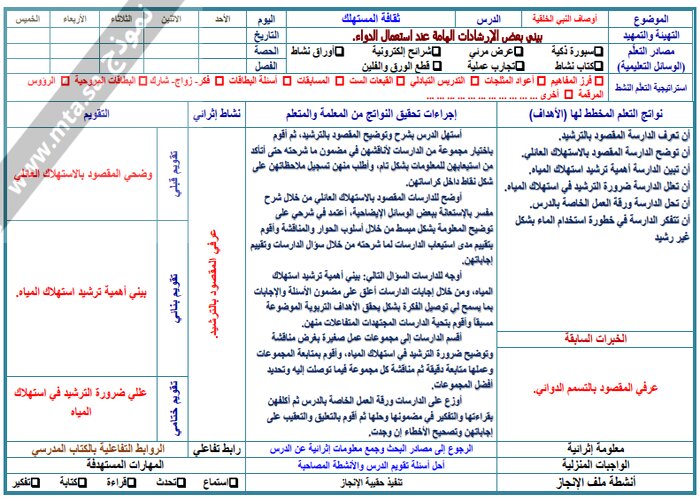 الموضوع أوصاف النبي الخلقية الدرس ثقافة المستهلك اليوم الأحد الاثنين الثلاثاء الأربعاء الخميس
التهيئة والتمهيد بيني بعض الإرشادات الهامة عند استعمال الدواء. التاريخ
مصادر التعلم سبورة ذكية عرض مرئي شرائح إلكترونية أوراق نشاط الحصة
(الوسائل التعليمية) كتاب نشاط تجارب عملية قطع الورق والفلين الفصل
استراتيجية التعلم النشط فرز المفاهيم أعواد المثلجات التدريس التبادلي القبعات الست المسابقات أسئلة البطاقات فكر- زواج- شارك البطاقات المروحية الرؤوس
المرقمة أخرى ... ... ... ... ... ... ... ... ...
نواتج التعلم المخطط لها (الأهداف)
أن تعرف الدارسة المقصود بالترشيد.
أن توضح الدارسة المقصود بالاستهلاك العائلي.
أن تبين الدارسة أهمية ترشيد استهلاك المياه.
أن تعلل الدارسة ضرورة الترشيد في استهلاك المياه.
أن تحل الدارسة ورقة العمل الخاصة بالدرس.
أن تتفكر الدارسة في خطورة استخدام الماء بشكل
غير رشيد
الخبرات السابقة
عرفي المقصود بالتسمم الدوائي.
إجراءات تحقيق النواتج من المعلمة والمتعلم
أستهل الدرس بشرح وتوضيح المقصود بالترشيد، ثم أقوم
باختيار مجموعة من الدارسات لأناقشهن في مضمون ما شرحته حتى أتأكد
من استيعابهن للمعلومات بشكل تام، وأطلب منهن تسجيل ملاحظاتهن على
شكل نقاط داخل كراساتهم.
أوضح للدارسات المقصود بالاستهلاك العائلي من خلال شرح
مفسر بالإستعانة ببعض الوسائل الإيضاحية، أعتمد في شرحي على
توضيح المعلومة بشكل مبسط من خلال أسلوب الحوار والمناقشة وأقوم
بتقييم مدى استيعاب الدارسات لما شرحته من خلال سؤال الدارسات وتقييم
إجاباتهن.
أوجه للدارسات السؤال التالي: بيني أهمية ترشيد استهلاك
المياه، ومن خلال إجابات الدارسات أعلق على مضمون الأسئلة والإجابات
بما يسمح لي توصيل الفكرة بشكل يحقق الأهداف التربوية الموضوعة
مسبقا وأقوم بتحية الدارسات المجتهدات المتفاعلات منهن.
أقسم الدارسات إلى مجموعات عمل صغيرة بغرض مناقشة
وتوضيح ضرورة الترشيد في استهلاك المياه، وأقوم بمتابعة المجموعات
وعملها متابعة دقيقة ثم مناقشة كل مجموعة فيما توصلت إليه وتحديد
أفضل المجموعات.
أوزع على الدارسات ورقة العمل الخاصة بالدرس ثم أكلفهن
بقراءتها والتفكير في مضمونها وحلها ثم أقوم بالتعليق والتعقيب على
إجاباتهن وتصحيح الأخطاء إن وجدت.
نشاط إثرائي
عرفي المقصود بالترشيد.
التقويم
تقويم قبلي وضحي المقصود بالاستهلاك العائلي
تقويم بنائي بيني أهمية ترشيد استهلاك المياه.
تقويم ختامي عللي ضرورة الترشيد في استهلاك
المياه
معلومة إثرائية الرجوع إلى مصادر البحث وجمع معلومات إثرائية عن الدرس رابط تفاعلي الروابط التفاعلية بالكتاب المدرسي
الواجبات المنزلية أحل أسئلة تقويم الدرس والأنشطة المصاحبة المهارات المستهدفة
أنشطة ملف الإنجاز تنفيذ حقيبة الإنجاز استماع تحدث قراءة كتابة تفكير
نموذج www.mta.sa